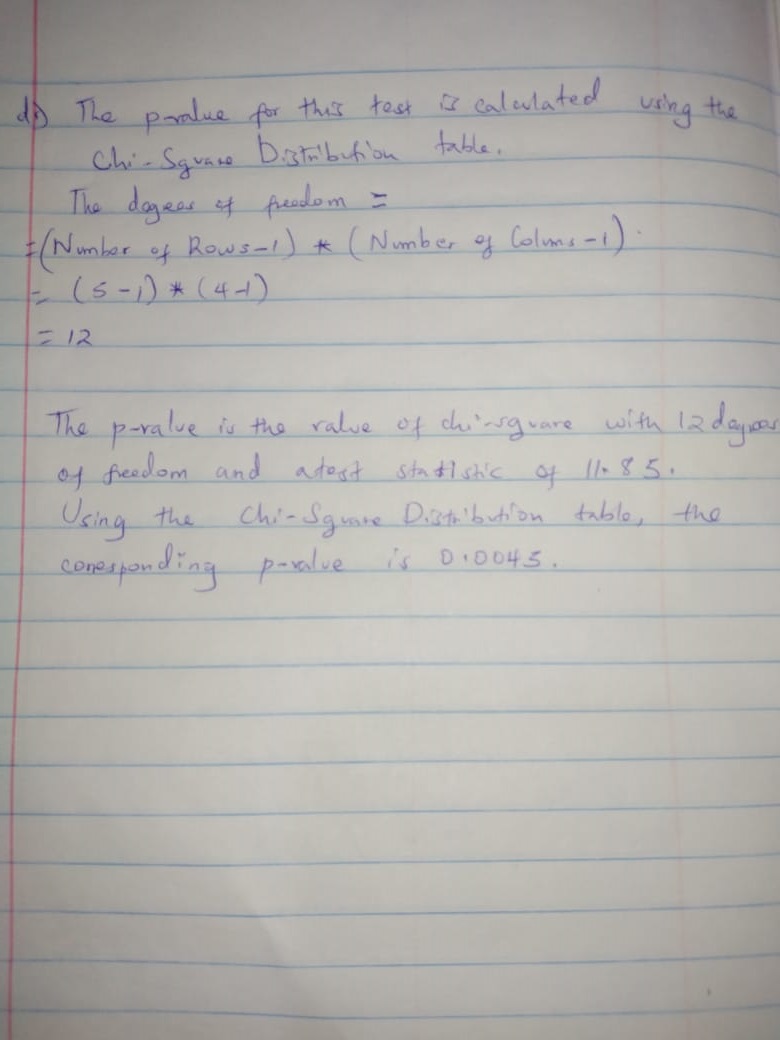 d) The p-value for this test is calculated using the
Chi-Square Distribution table.
The degrees of freedom =
=(Number of Rows-1) * (Number of Colums-1).
= (5-1) * (4-1)
= 12
The p-value is the value of chi-square with 12 degrees
of freedom and a test statistic of 11.85.
Using the Chi-Square Distribution table, the
corresponding p-value is 0.0045.